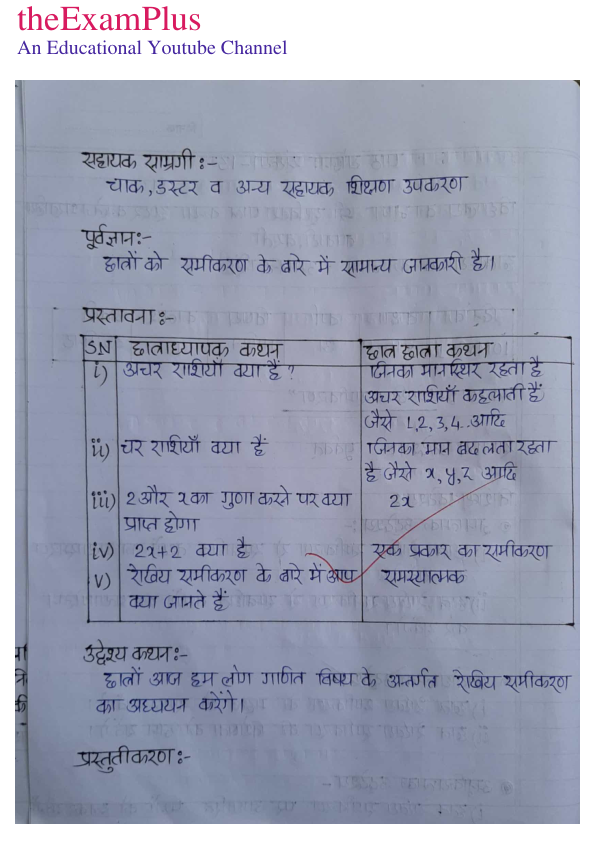 theExamPlus
An Educational Youtube Channel
सहायक सामग्री :-
चाक, डस्टर व अन्य सहायक शिक्षण उपकरण
पूर्वज्ञान:-
छात्रों को समीकरण के बारे में सामान्य जानकारी है।
प्रस्तावना :-
SN छात्राध्यापक कथन छात्र छात्रा कथन
i) अचर राशियाँ क्या हैं ? जिनका मान स्थिर रहता है
अचर राशियाँ कहलाती हैं
जैसे 1,2,3,4.. आदि
ii) चर राशियाँ क्या हैं जिनका मान बदलता रहता
है जैसे x, y, z आदि
iii) 2 और x का गुणा करने पर क्या 2x
प्राप्त होगा
iv) 2x+2 क्या है एक प्रकार का समीकरण
v) रेखिय समीकरण के बारे में आप समस्यात्मक
क्या जानते हैं
उद्देश्य कथन:-
छात्रों आज हम लोग गणित विषय के अन्तर्गत रेखिय समीकरण
का अध्ययन करेंगे।
प्रस्तुतीकरण :-